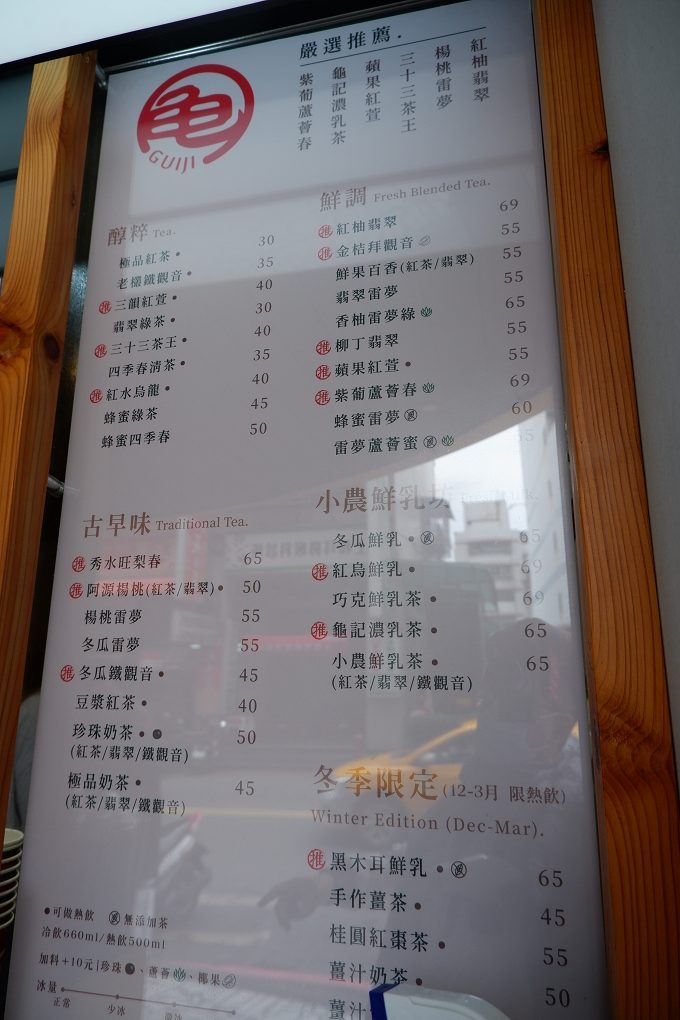 龜
GUIJI
嚴選推薦.
紅柚翡翠
楊桃雷夢
三十三茶王
蘋果紅萱
龜記濃乳茶
紫葡蘆薈春
醇粹 Tea.
極品紅茶 • 30
老欉鐵觀音 • 35
推 三韻紅萱 • 40
翡翠綠茶 • 30
推 三十三茶王 • 40
四季春清茶 • 35
推 紅水烏龍 • 40
蜂蜜綠茶 45
蜂蜜四季春 50
古早味 Traditional Tea.
推 秀水旺梨春 65
推 阿源楊桃(紅茶/翡翠) • 50
楊桃雷夢 55
冬瓜雷夢 55
推 冬瓜鐵觀音 • 45
豆漿紅茶 • 40
珍珠奶茶 • 50
(紅茶/翡翠/鐵觀音)
極品奶茶 • 45
(紅茶/翡翠/鐵觀音)
•可做熱飲 無添加茶
冷飲660ml/熱飲500ml
加料+10元|珍珠、蘆薈、椰果
冰量
正常 少冰 微冰
鮮調 Fresh Blended Tea.
推 紅柚翡翠 69
推 金桔拜觀音 55
鮮果百香(紅茶/翡翠) 55
翡翠雷夢 55
香柚雷夢綠 65
推 柳丁翡翠 55
推 蘋果紅萱 • 55
推 紫葡蘆薈春 69
蜂蜜雷夢 60
雷夢蘆薈蜜
小農鮮乳坊
冬瓜鮮乳 • 65
推 紅烏鮮乳 • 69
巧克鮮乳茶 • 69
推 龜記濃乳茶 • 65
小農鮮乳茶 • 65
(紅茶/翡翠/鐵觀音)
冬季限定 (12-3月 限熱飲)
Winter Edition (Dec-Mar).
推 黑木耳鮮乳 • 65
手作薑茶 • 45
桂圓紅棗茶 • 55
薑汁奶茶 • 50
薑汁